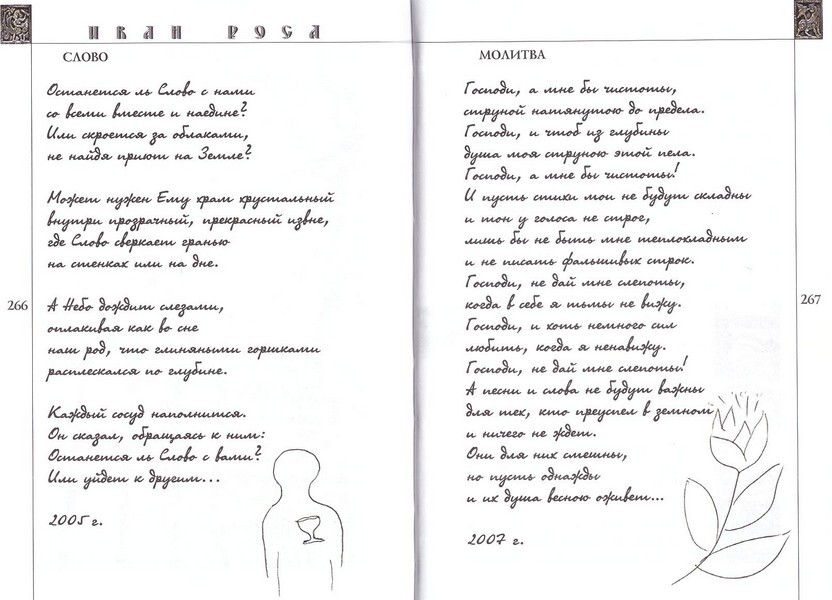 ИВАН РОСА
СЛОВО
Останется ль Слово с нами
со всеми вместе и наедине?
Или скроется за облаками,
не найдя приют на Земле?
Может нужен Ему храм хрустальный
внутри прозрачный, прекрасный извне,
где Слово сверкает гранью
на стенках или на дне.
266
А Небо дождит слезами,
оплакивая как во сне
наш род, что глиняными горшками
расплескался по глубине.
Каждый сосуд наполнится.
Он сказал, обращаясь к ним:
Останется ль Слово с вами?
Или уйдет к другим...
2005 г.
МОЛИТВА
Господи, а мне бы чистоты,
струной натянутою до предела.
Господи, и чтоб из глубины
душа моя струною этой пела.
Господи, а мне бы чистоты!
И пусть стихи мои не будут складны
и тон у голоса не строг,
лишь бы не быть мне теплохладным
и не писать фальшивых строк.
Господи, не дай мне слепоты,
когда в себе я тьмы не вижу.
267
Господи, и хоть немного сил
любить, когда я ненавижу.
Господи, не дай мне слепоты!
А песни и слова не будут важны
для тех, кто преуспел в земном
и ничего не ждет.
Они для них смешны,
но пусть однажды
и их душа весною оживет...
2007 г.